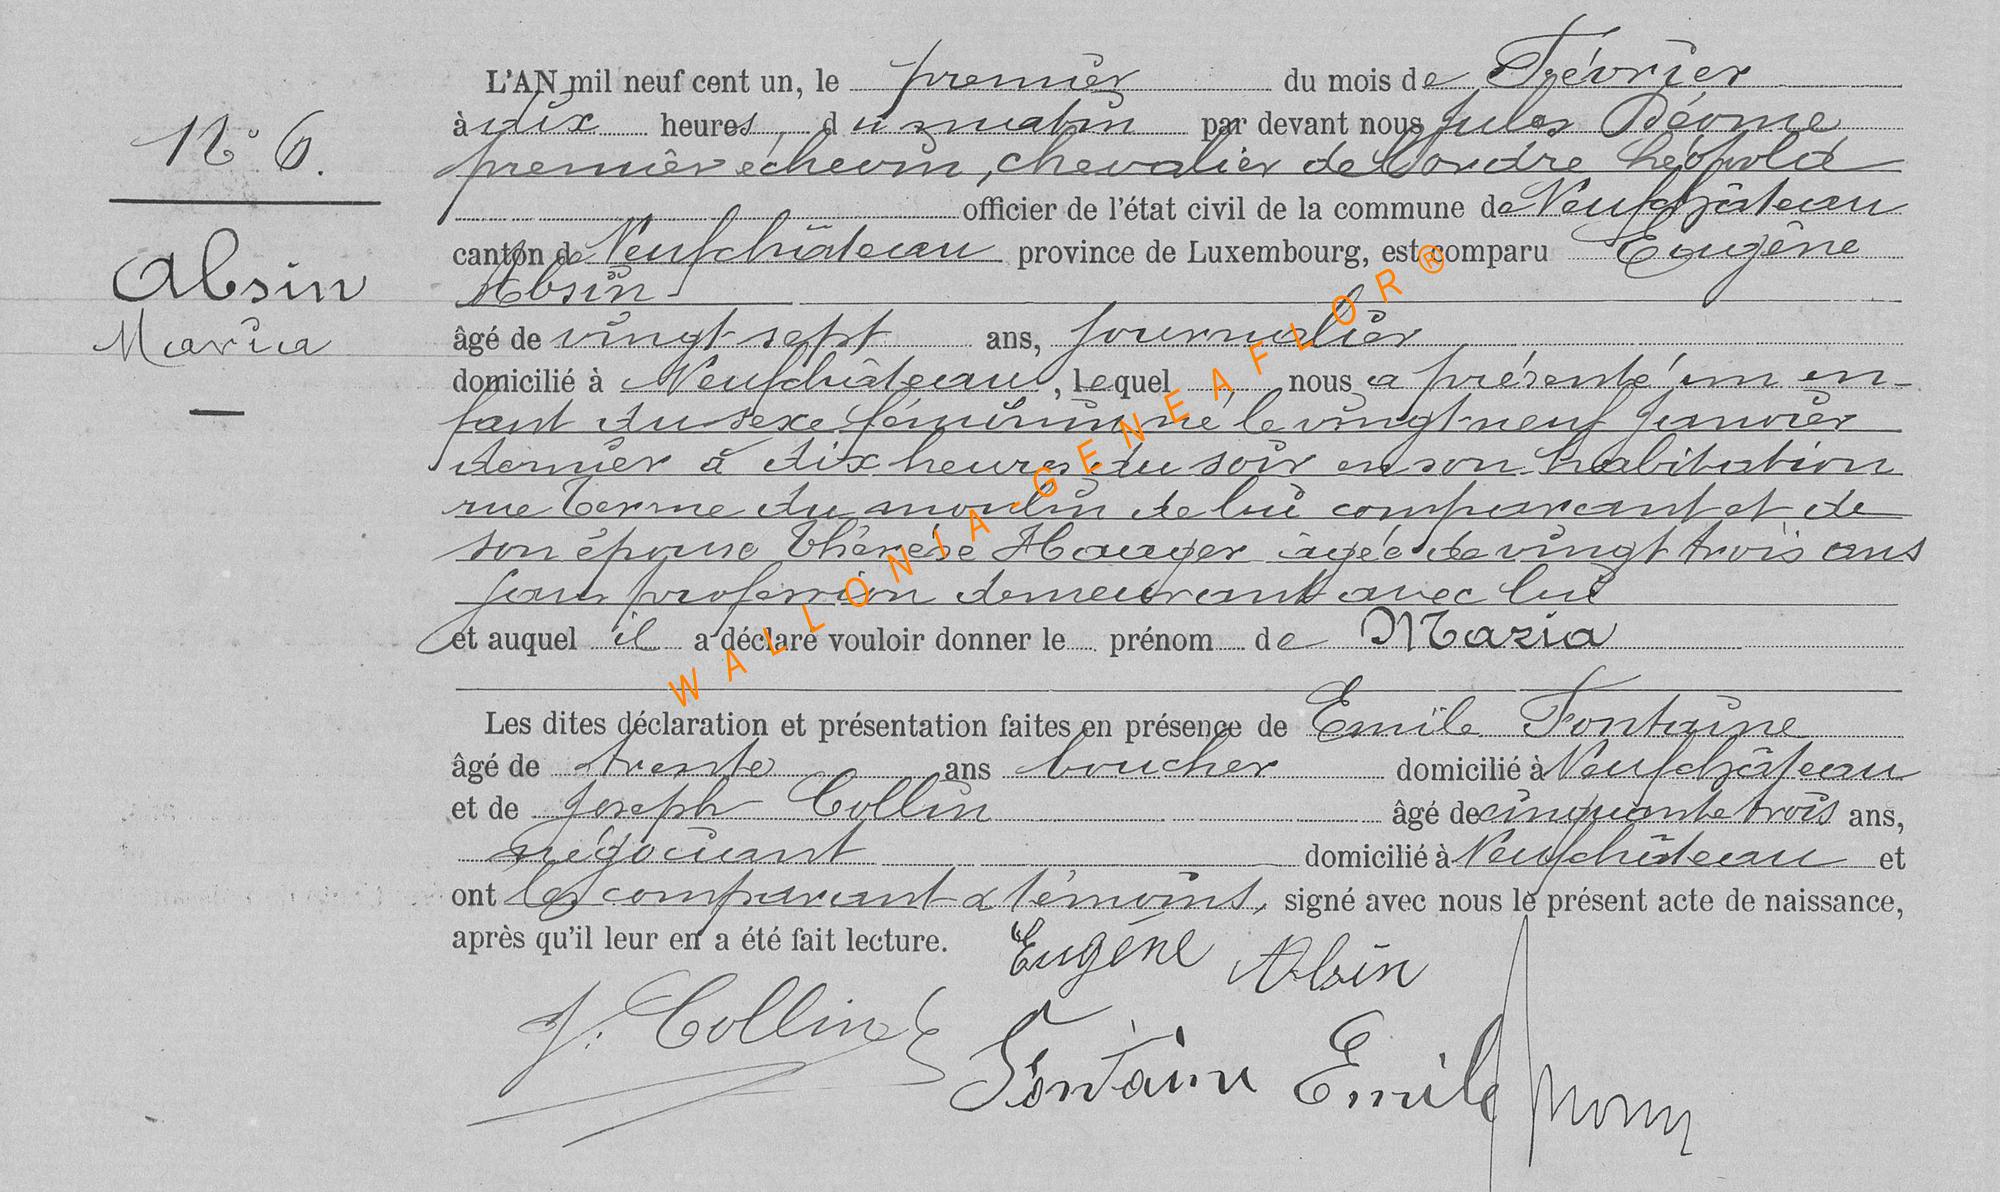 N° 6.
Absin
Maria
L'AN mil neuf cent un, le premier du mois de Février
à dix heures, du matin par devant nous Jules
premier échevin, chevalier de l'ordre Léopold
officier de l'état civil de la commune de Neufchâteau
canton de Neufchâteau province de Luxembourg, est comparu Eugène
Absin
âgé de vingt sept ans, journalier
domicilié à Neufchâteau, lequel nous a présenté un en-
fant du sexe féminin né le vingt neuf janvier
dernier à dix heures du soir en son habitation
rue Terme du moulin de lui comparant et de
son épouse Thérèse âgée de vingt trois ans
sans profession demeurant avec lui
et auquel il a déclaré vouloir donner le prénom de Maria
Les dites déclaration et présentation faites en présence de Emile Fontaine
âgé de trente ans boucher domicilié à Neufchâteau
et de Joseph Collin âgé de cinquante trois ans,
négociant domicilié à Neufchâteau et
ont les comparant & témoins, signé avec nous le présent acte de naissance,
après qu'il leur en a été fait lecture. Eugéne Absin
J. Collin
Fontaine Emile
WALLONIA-GENEAFLOR®